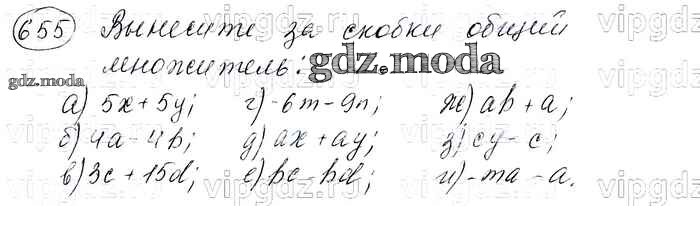 655 Вынесите за скобки общий
множитель:
а) 5x + 5y; г) -6m - 9n; ж) ab + a;
б) 4a - 4b; д) ax + ay; з) cy - c;
в) 3c + 15d; е) bc - bd; и) -ma - a.
gdz.moda
gdz.moda
vipgdz
vipgdz.ru
vipgdz.ru
vipgdz